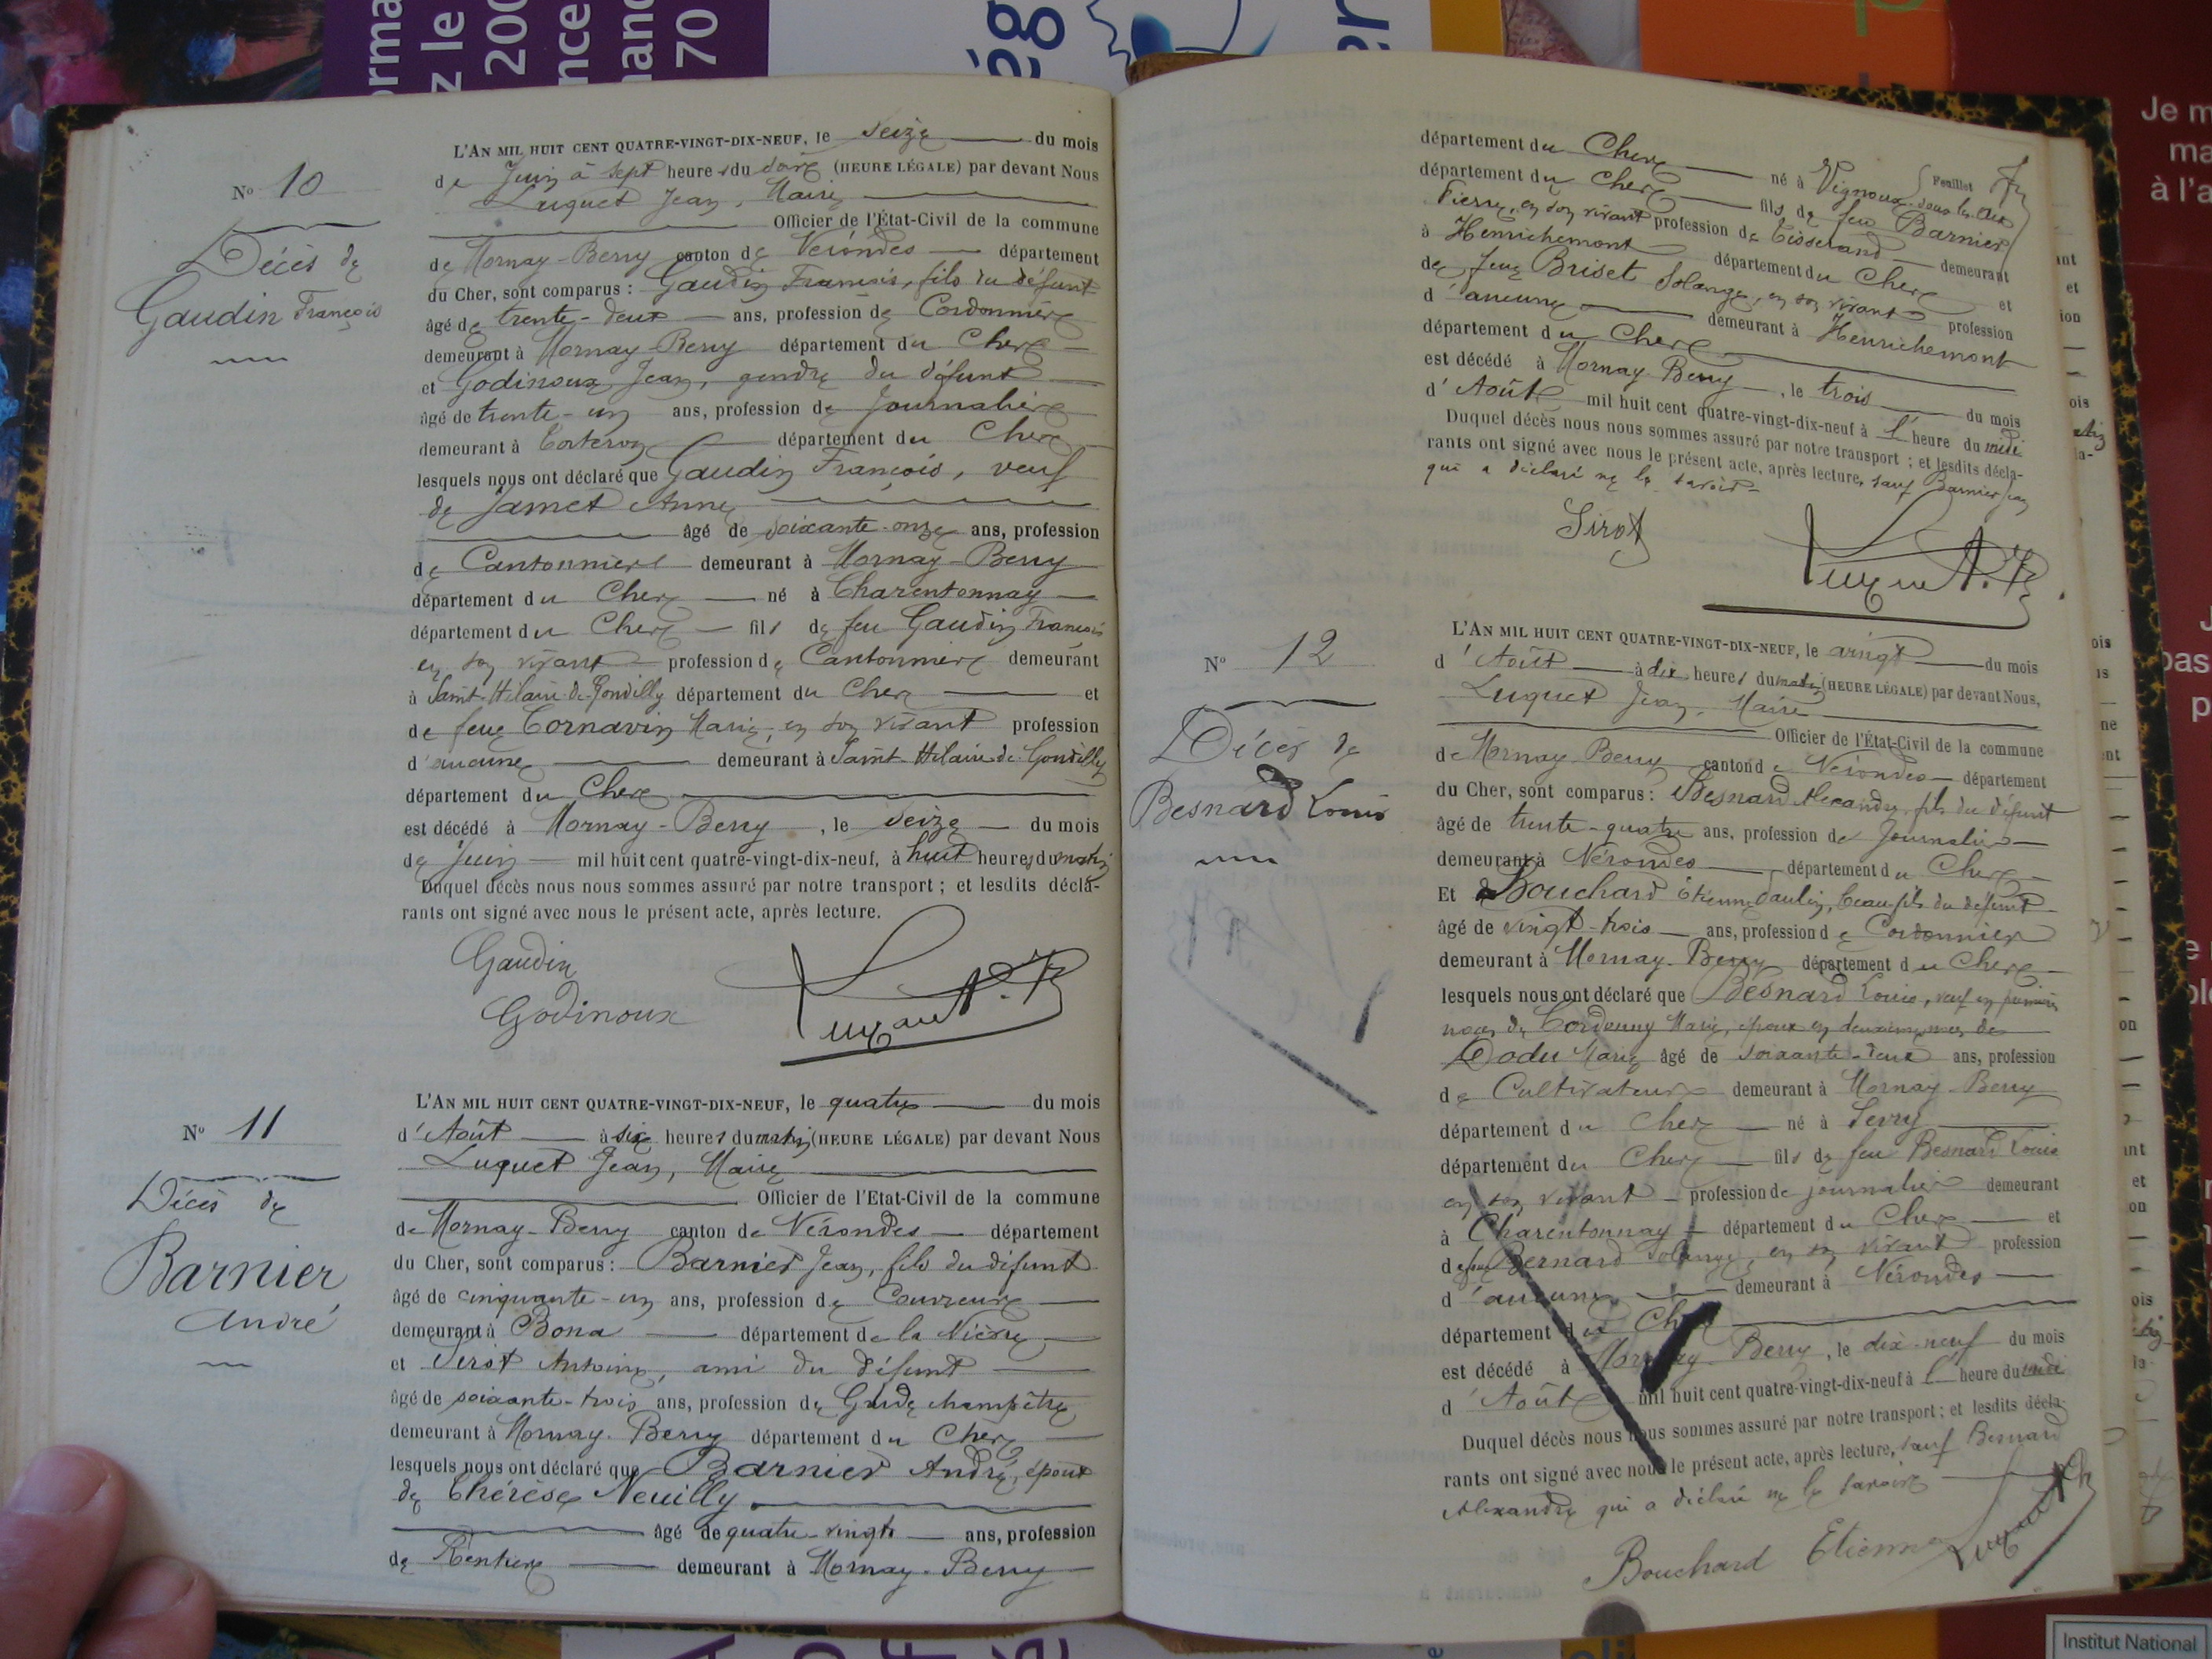 orma
z le
200
nce
nand
70
ég
er
Je m
ma
à l'a
N° 10
Décès de
Gaudin François
L'AN MIL HUIT CENT QUATRE-VINGT-DIX-NEUF, le seize du mois
de Juin à sept heures du soir (HEURE LÉGALE) par devant Nous
Luquet Jean, Maire
Officier de l'État-Civil de la commune
de Mornay-Berry canton de Nérondes département
du Cher, sont comparus : Gaudin François, fils du défunt
âgé de trente-deux ans, profession de Cordonnier
demeurant à Mornay-Berry département du Cher
et Godinoux Jean, gendre du défunt
âgé de trente-un ans, profession de Journalier
demeurant à Torteron département du Cher
lesquels nous ont déclaré que Gaudin François, veuf
de Jamet Anne
âgé de soixante-onze ans, profession
de Cantonnier demeurant à Mornay-Berry
département du Cher né à Charentonnay
département du Cher fils de feu Gaudin François
en son vivant profession de Cantonnier demeurant
à Saint-Hilaire-de-Gondilly département du Cher et
de feue Cornavin Marie, en son vivant profession
d'aucune demeurant à Saint-Hilaire-de-Gondilly
département du Cher
est décédé à Mornay-Berry, le seize du mois
de Juin mil huit cent quatre-vingt-dix-neuf, à huit heures du matin
Duquel décès nous nous sommes assuré par notre transport ; et lesdits décla-
rants ont signé avec nous le présent acte, après lecture.
Gaudin
Godinoux
Luquet
N° 11
Décès de
Barnier
André
L'AN MIL HUIT CENT QUATRE-VINGT-DIX-NEUF, le quatre du mois
d'Août à six heures du matin (HEURE LÉGALE) par devant Nous
Luquet Jean, Maire
Officier de l'Etat-Civil de la commune
de Mornay-Berry canton de Nérondes département
du Cher, sont comparus : Barnier Jean, fils du défunt
âgé de cinquante-un ans, profession de Couvreur
demeurant à Bona département de la Nièvre
et Sirot Antoine, ami du défunt
âgé de soixante-trois ans, profession de Garde champêtre
demeurant à Mornay-Berry département du Cher
lesquels nous ont déclaré que Barnier André, époux
de Thérèse Neuilly
âgé de quatre-vingts ans, profession
de Rentier demeurant à Mornay-Berry
Feuillet
département du Cher né à Vignoux-sous-les-Aix
département du Cher fils de feu Barnier
Pierre, en son vivant profession de Tisserand demeurant
à Henrichemont département du Cher et
de feue Briset Solange, en son vivant profession
d'aucune demeurant à Henrichemont
département du Cher
est décédé à Mornay-Berry, le trois du mois
d'Août mil huit cent quatre-vingt-dix-neuf à 1 heure du
Duquel décès nous nous sommes assuré par notre transport ; et lesdits décla-
rants ont signé avec nous le présent acte, après lecture, sauf Barnier Jean
qui a déclaré ne le savoir
Sirot
Luquet
N° 12
Décès de
Besnard Louis
L'AN MIL HUIT CENT QUATRE-VINGT-DIX-NEUF, le vingt du mois
d'Août à dix heures du matin (HEURE LÉGALE) par devant Nous,
Luquet Jean, Maire
Officier de l'État-Civil de la commune
de Mornay-Berry canton de Nérondes département
du Cher, sont comparus : Besnard Alexandre, fils du défunt
âgé de trente-quatre ans, profession de Journalier
demeurant à Nérondes département du Cher
Et Bouchard Étienne Paulin, beau-fils du défunt
âgé de vingt-trois ans, profession de Cordonnier
demeurant à Mornay-Berry département du Cher
lesquels nous ont déclaré que Besnard Louis, veuf en premières
noces de Cordonny Marie, époux en deuxièmes noces de
Dodu Marie âgé de soixante-deux ans, profession
de Cultivateur demeurant à Mornay-Berry
département du Cher né à Sevry
département du Cher fils de feu Besnard Louis
en son vivant profession de journalier demeurant
à Charentonnay département du Cher et
de feue Bernard Solange, en son vivant profession
d'aucune demeurant à Nérondes
département du Cher
est décédé à Mornay-Berry, le dix-neuf du mois
d'Août mil huit cent quatre-vingt-dix-neuf à 1 heure du
Duquel décès nous nous sommes assuré par notre transport ; et lesdits décla-
rants ont signé avec nous le présent acte, après lecture, sauf Besnard
Alexandre qui a déclaré ne le savoir
Bouchard Etienne Luquet
Institut National